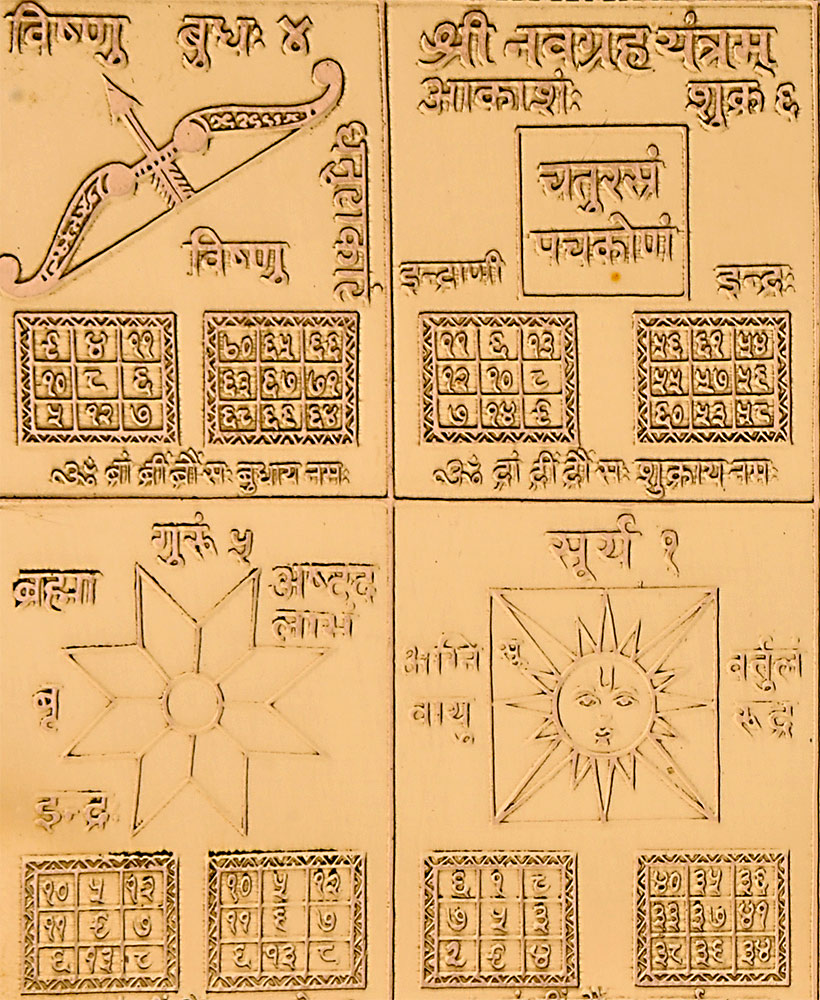 विष्णु बुधः ४
धनुराकारं
विष्णु
९ ४ ११
१० ८ ६
५ १२ ७
७० ६५ ६६
६३ ६७ ७१
६८ ६९ ६४
ॐ ब्रां ब्रीं ब्रौं सः बुधाय नमः
श्री नवग्रह यंत्रम्
आकाशः शुक्र ६
चतुरस्रं
पंचकोणं
इन्द्राणी इन्द्रः
११ ६ १३
१२ १० ८
७ १४ ९
५६ ६१ ५४
५५ ५७ ५९
६० ५३ ५८
ॐ द्रां द्रीं द्रौं सः शुक्राय नमः
गुरुं ५
ब्रह्मा अष्टद
बृ
इन्द्रः
१० ५ १२
११ ९ ७
६ १३ ८
१० ५ १२
११ ९ ७
६ १३ ८
सूर्य १
अग्नि सू वर्तुलं
वायु रुद्र
६ १ ८
७ ५ ३
२ ९ ४
४० ३५ ३६
३३ ३७ ४१
३८ ३९ ३४